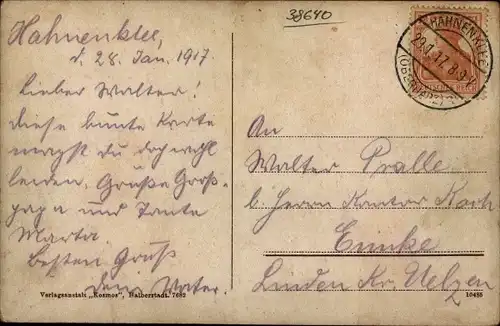 38640
Hahnenklee,
d. 28. Jan. 1917.
Lieber Walter!
diese bunte Karte
magst du doch wohl
leiden. Grüße Groß-
papa und Tante
Marta.
Besten Gruß
dein Vater.
HAHNENKLEE
29.1.17. 8-9V
(OBERHARZ)
DEUTSCHES REICH
An
Walter Pralle
b. Herrn Kantor Koch
Emmke
Linden Kr. Uelzen
Verlagsanstalt „Kosmos", Halberstadt. 7682
10455